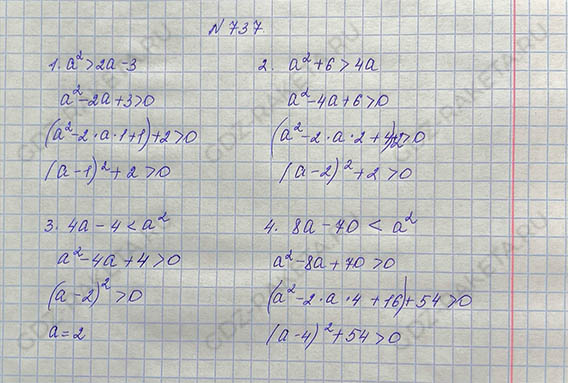 N 737
1. a²>2a-3
a²-2a+3>0
(a²-2·a·1+1)+2>0
(a-1)²+2>0
2. a²+6>4a
a²-4a+6>0
(a²-2·a·2+4)+2>0
(a-2)²+2>0
3. 4a-4<a²
a²-4a+4>0
(a-2)²>0
a=2
4. 8a-70<a²
a²-8a+70>0
(a²-2·a·4+16)+54>0
(a-4)²+54>0
GDZ-RAKETA.RU
GDZ-RAKETA.RU
GDZ-RAKETA.RU
GDZ-RAKETA.RU
GDZ-RAKETA.RU
GDZ-RAKETA.RU